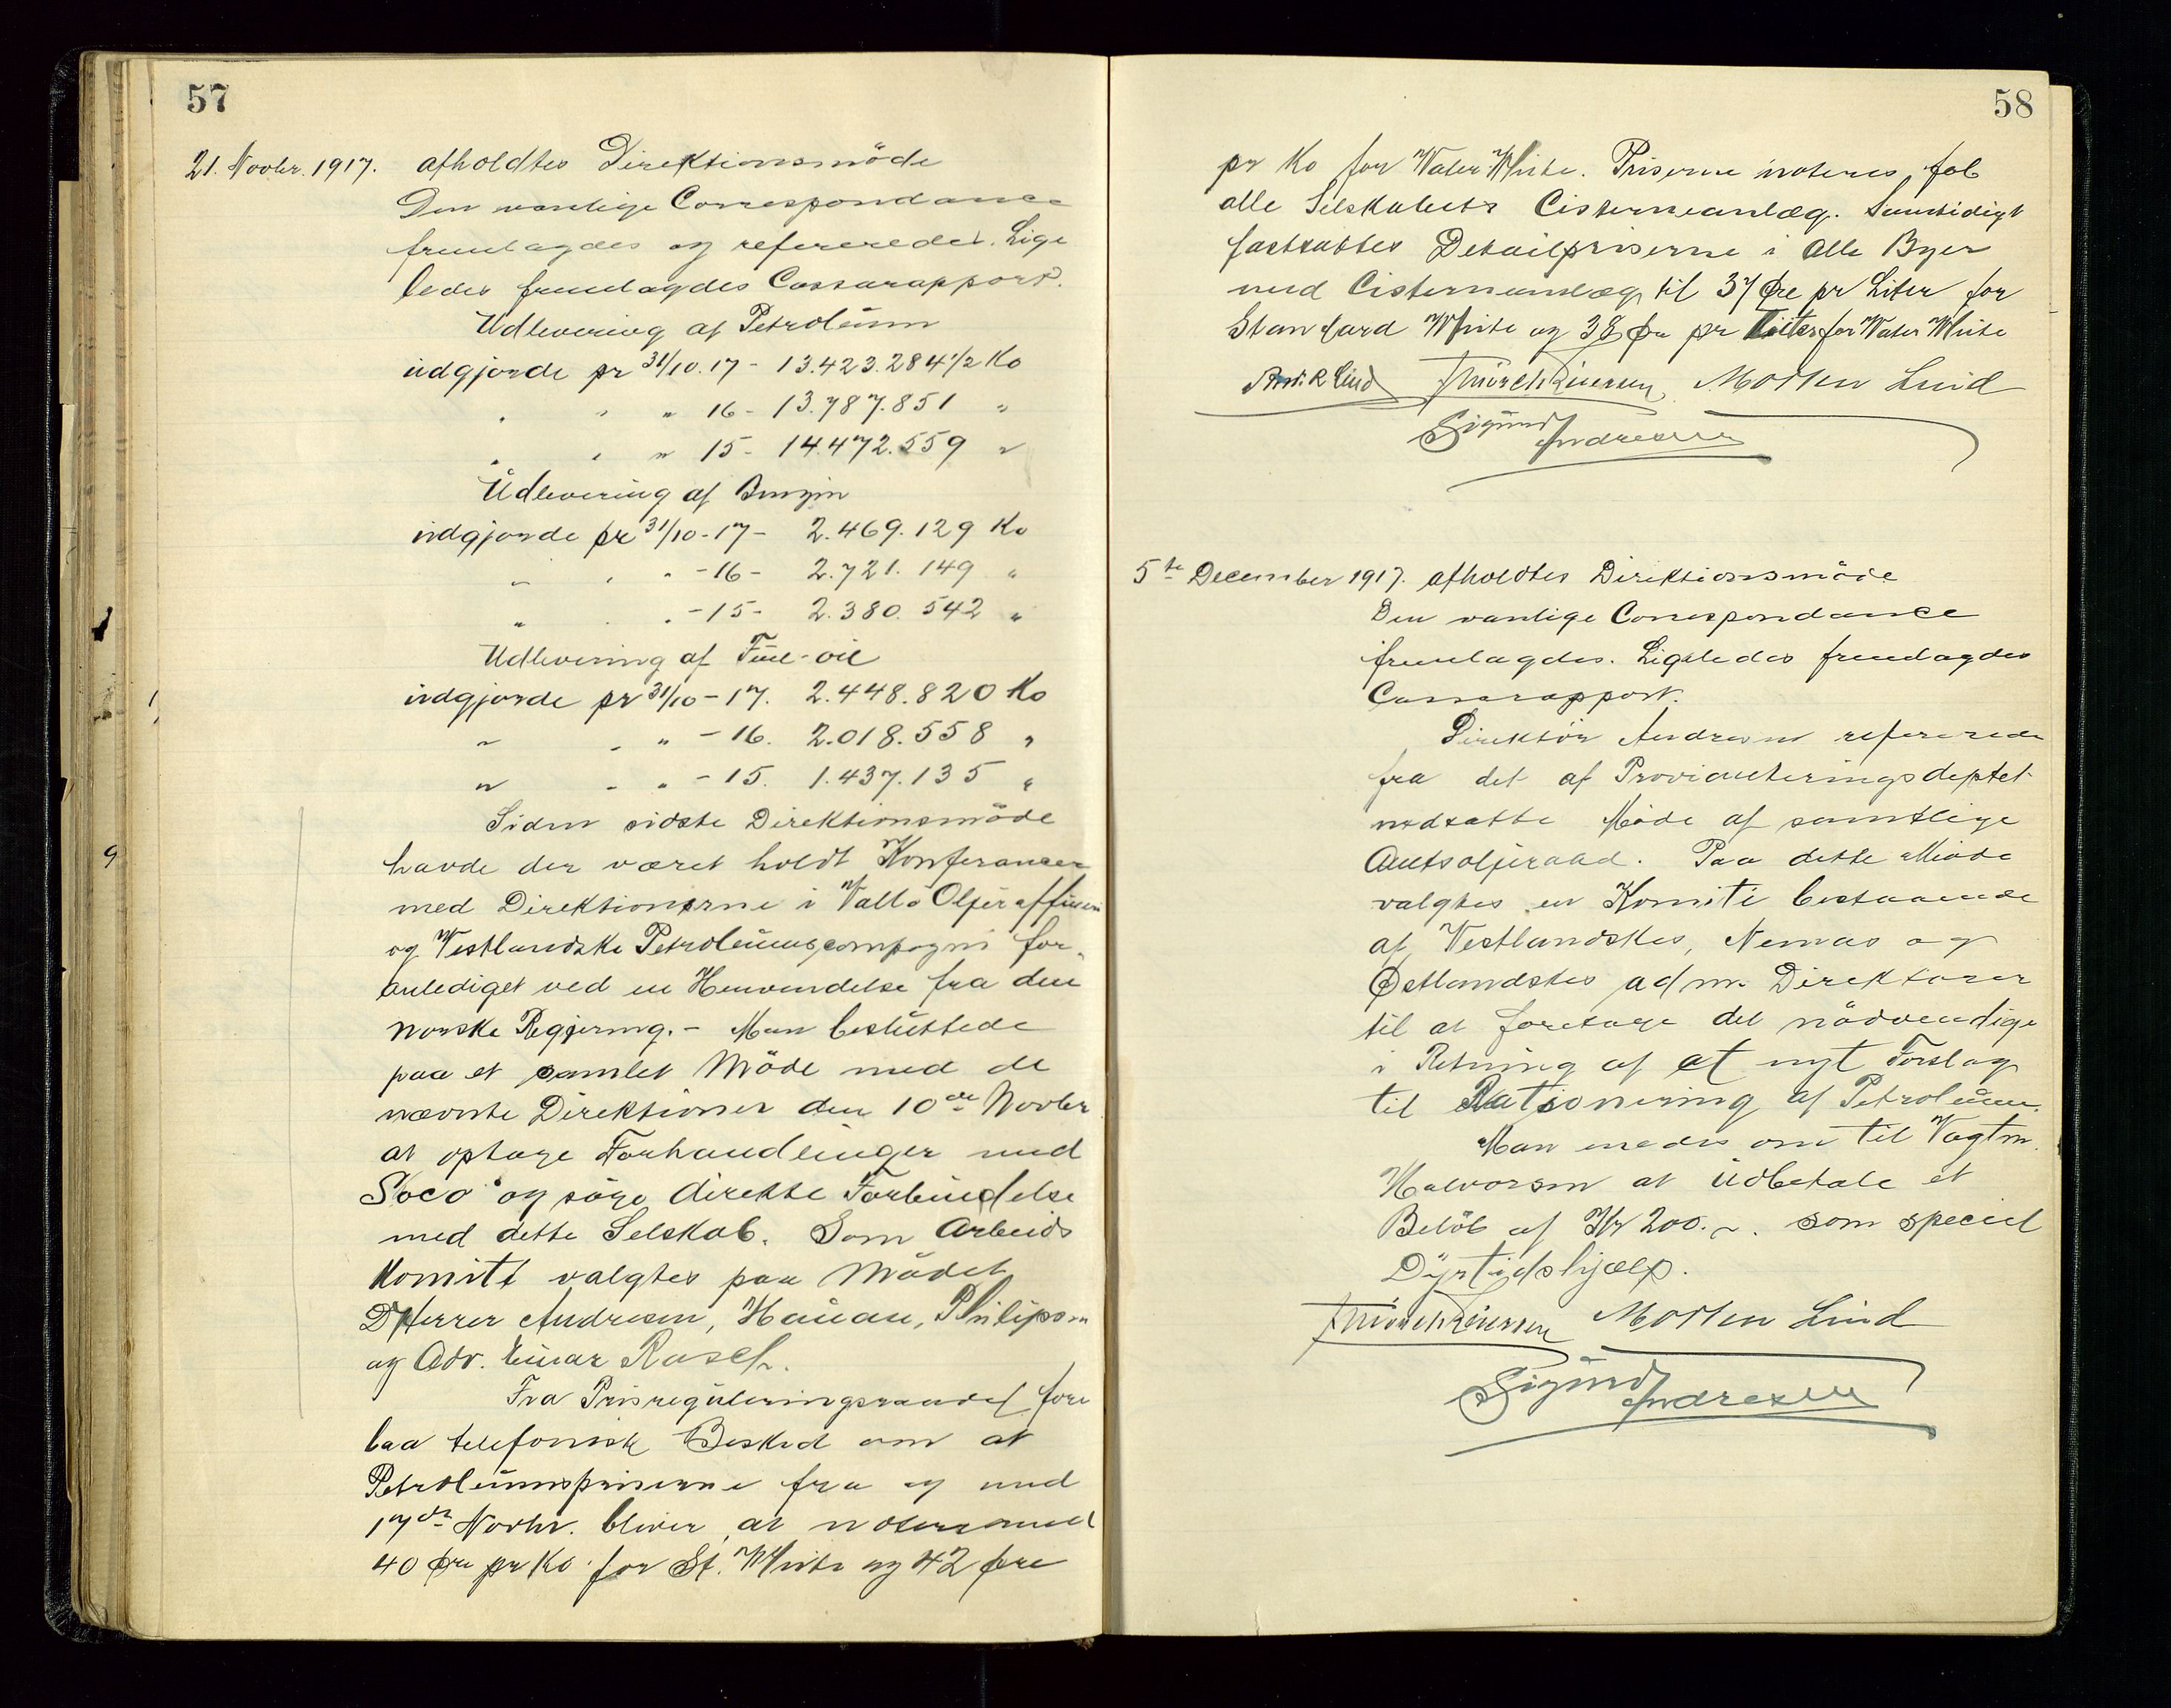 57
21. Novbr. 1917. afholdtes Direktionsmöde
Den vanlige Correspondance
fremlagdes og refereredes. Lige
ledes fremlagdes Cassarapport.
Udlevering af Petroleum
udgjorde pr 31/10. 17 - 13.423.284 1/2 Ko
" " " 16 - 13.787.851 "
" " " 15 - 14.472.559 "
Udlevering af Benzin
udgjorde pr 31/10 - 17 - 2.469.129 Ko
" " " - 16 - 2.721.149 "
" " " - 15 - 2.380.542 "
Udlevering af Fuel-oil
udgjorde pr 31/10 - 17. 2.448.820 Ko
" " " - 16. 2.018.558 "
" " " - 15. 1.437.135 "
Siden sidste Direktionsmöde
havde der været holdt Konferancer
med Direktionerne i Vallö Oljeraffineri
og Vestlandske Petroleumscompagni for-
anlediget ved en Henvendelse fra den
norske Regjering. - Man besluttede
paa et samlet Möde med de
nævnte Direktioner den 10de Novbr
at optage Forhandlinger med
"Soco" og söge direkte Forbindelse
med dette Selskab. Som Arbeids
Komite valgtes paa Mödet
DHerrer Andresen, Hanau, Philipson
og Adv. Einar Rasch.
Fra Prisreguleringsraadet fore
laa telefonisk Besked om at
Petroleumspriserne fra og med
17de Novbr. bliver at notere med
40 øre pr Ko for St. White og 42 øre
58
pr Ko for Water White. Priserne noteres fob
alle Selskabets Cisterneanlæg. Samtidigt
fastsattes Detailpriserne i alle Byer
med Cisterneanlæg til 37 Øre pr Liter for
Standard White og 38 øre pr Liter for Water White
Lind Morten Lind
Sigurd Andresen
5te December 1917. afholdtes Direktionsmöde
Den vanlige Correspondance
fremlagdes. Ligeledes fremlagdes
Cassarapport.
Direktör Andresen refererede
fra det af Provianteringsdeptet
nedsatte Möde af samtlige
Amtsoljeraad. Paa dette Möde
valgtes en Komite bestaaende
af Vestlandskes, Nemas og
Østlandskes adm. Direktörer
til at foretage det nödvendige
i Retning af et nyt Forslag
til Rationering af Petroleum.
Man enedes om til Vagtm.
Halvorsen at udbetale et
Belöb af Kr 200.- som speciel
Dyrtidshjælp.
Morten Lind
Sigurd Andresen